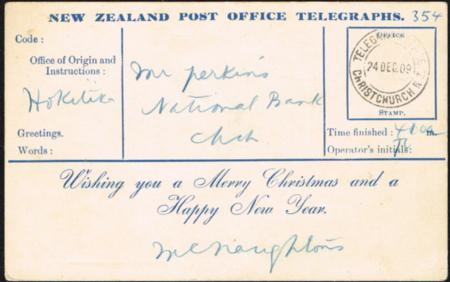 NEW ZEALAND POST OFFICE TELEGRAPHS. 354
Code :
Office of Origin and
Instructions :
Hokitika
Greetings.
Words :
Mr Perkins
National Bank
Chch
OFFICE
TELEG
24 DEC. 09
CHRISTCHURCH N.Z.
STAMP.
Time finished :
m.
Operator's initials:
Wishing you a Merry Christmas and a
Happy New Year.
McNaughtons